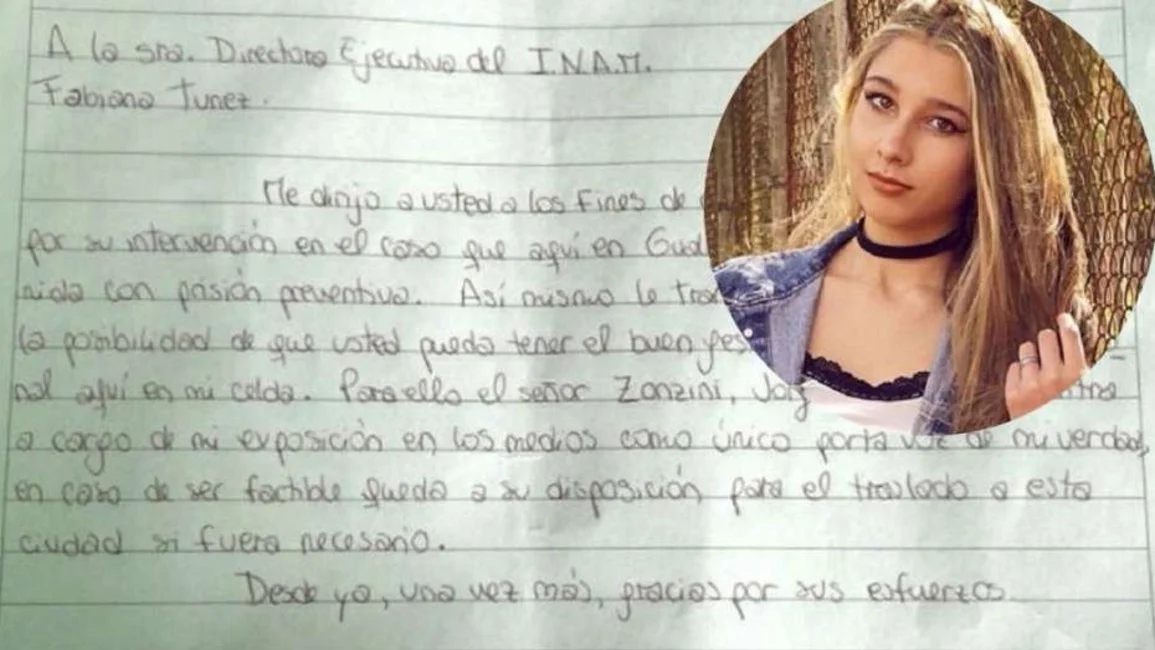 A la sra. Directora Ejecutiva del I.N.A.M.
Fabiana Tunez.
Me dirijo a usted a los fines de
por su intervención en el caso que aquí en Gual
nida con prisión preventiva. Así mismo le tras
la posibilidad de que usted pueda tener el buen ges
nal aquí en mi celda. Para ello el señor Zanzini, Jorg
a cargo de mi exposición en los medios como único porta voz de mi verdad,
en caso de ser factible queda a su disposición para el traslado a esta
ciudad si fuera necesario.
Desde ya, una vez más, gracias por sus esfuerzos